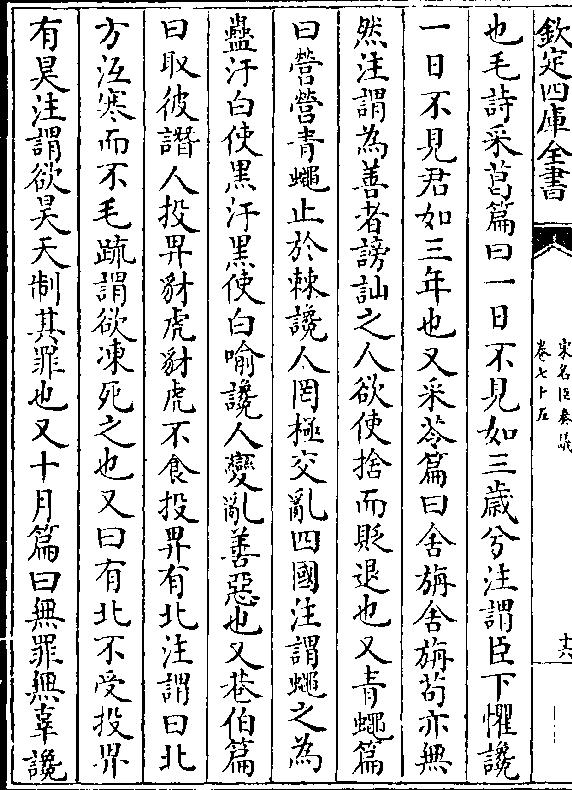 欽定四庫全書
宋名臣奏議
卷七十五
十六
也毛詩采葛篇曰一日不見如三歳兮注謂臣下懼讒
一日不見君如三年也又采苓篇曰舍旃舍旃茍亦無
然注謂為善者謗訕之人欲使捨而貶退也又青蠅篇
曰營營青蠅止於棘讒人罔極交亂四國注謂蠅之為
蠱汙白使黒汙黒使白喻讒人變亂善惡也又巷伯篇
曰取彼譖人投畀豺虎豺虎不食投畀有北注謂曰北
方沍寒而不毛䟽謂欲凍死之也又曰有北不受投畀
有昊注謂欲昊天制其罪也又十月篇曰無罪無辜讒